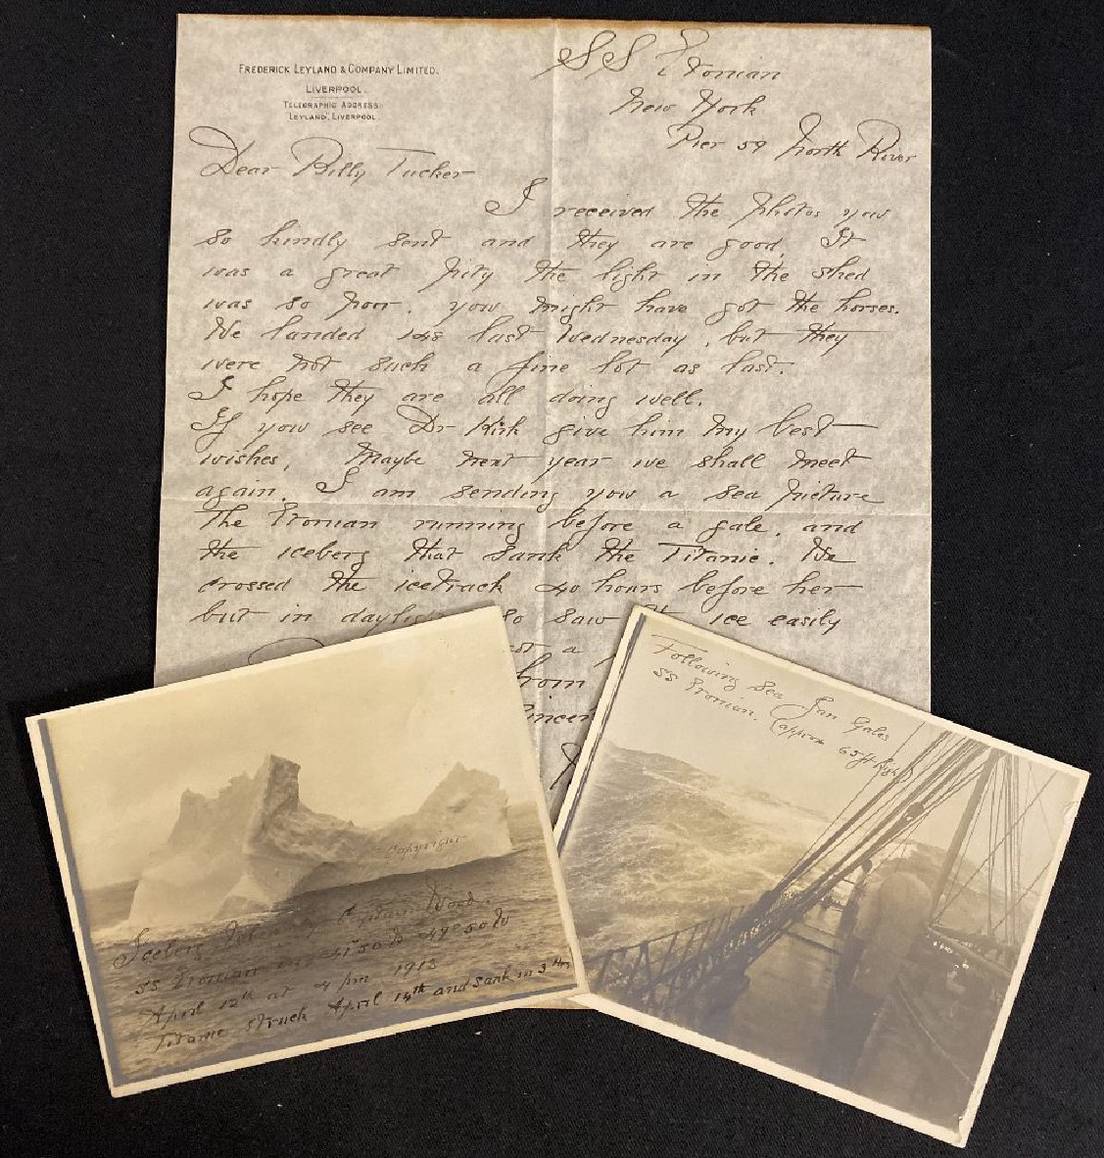 FREDERICK LEYLAND & COMPANY LIMITED.
LIVERPOOL.
TELEGRAPHIC ADDRESS:
"LEYLAND", LIVERPOOL
SS Etonian
New York
Pier 59 North River
Dear Billy Tucker
I received the photos you
so kindly sent and they are good. It
was a great pity the light in the shed
was so poor. you might have got the horses.
We landed 148 last Wednesday, but they
were not such a fine lot as last.
I hope they are all doing well.
If you see Dr Kirk give him my best
wishes, Maybe next year we shall meet
again. I am sending you a sea picture
The Etonian running before a gale, and
the iceberg that sank the Titanic. We
crossed the ice track 40 hours before her
but in daylight so saw the ice easily
a
from
Following Sea Jan Gales
SS Etonian. (approx 65 ft high)
Copyright
Iceberg taken by Captain Wood.
SS Etonian in 41°50 N 49°50 W
April 12th at 4 pm 1912
Titanic struck April 14th and sank in 3 Hrs